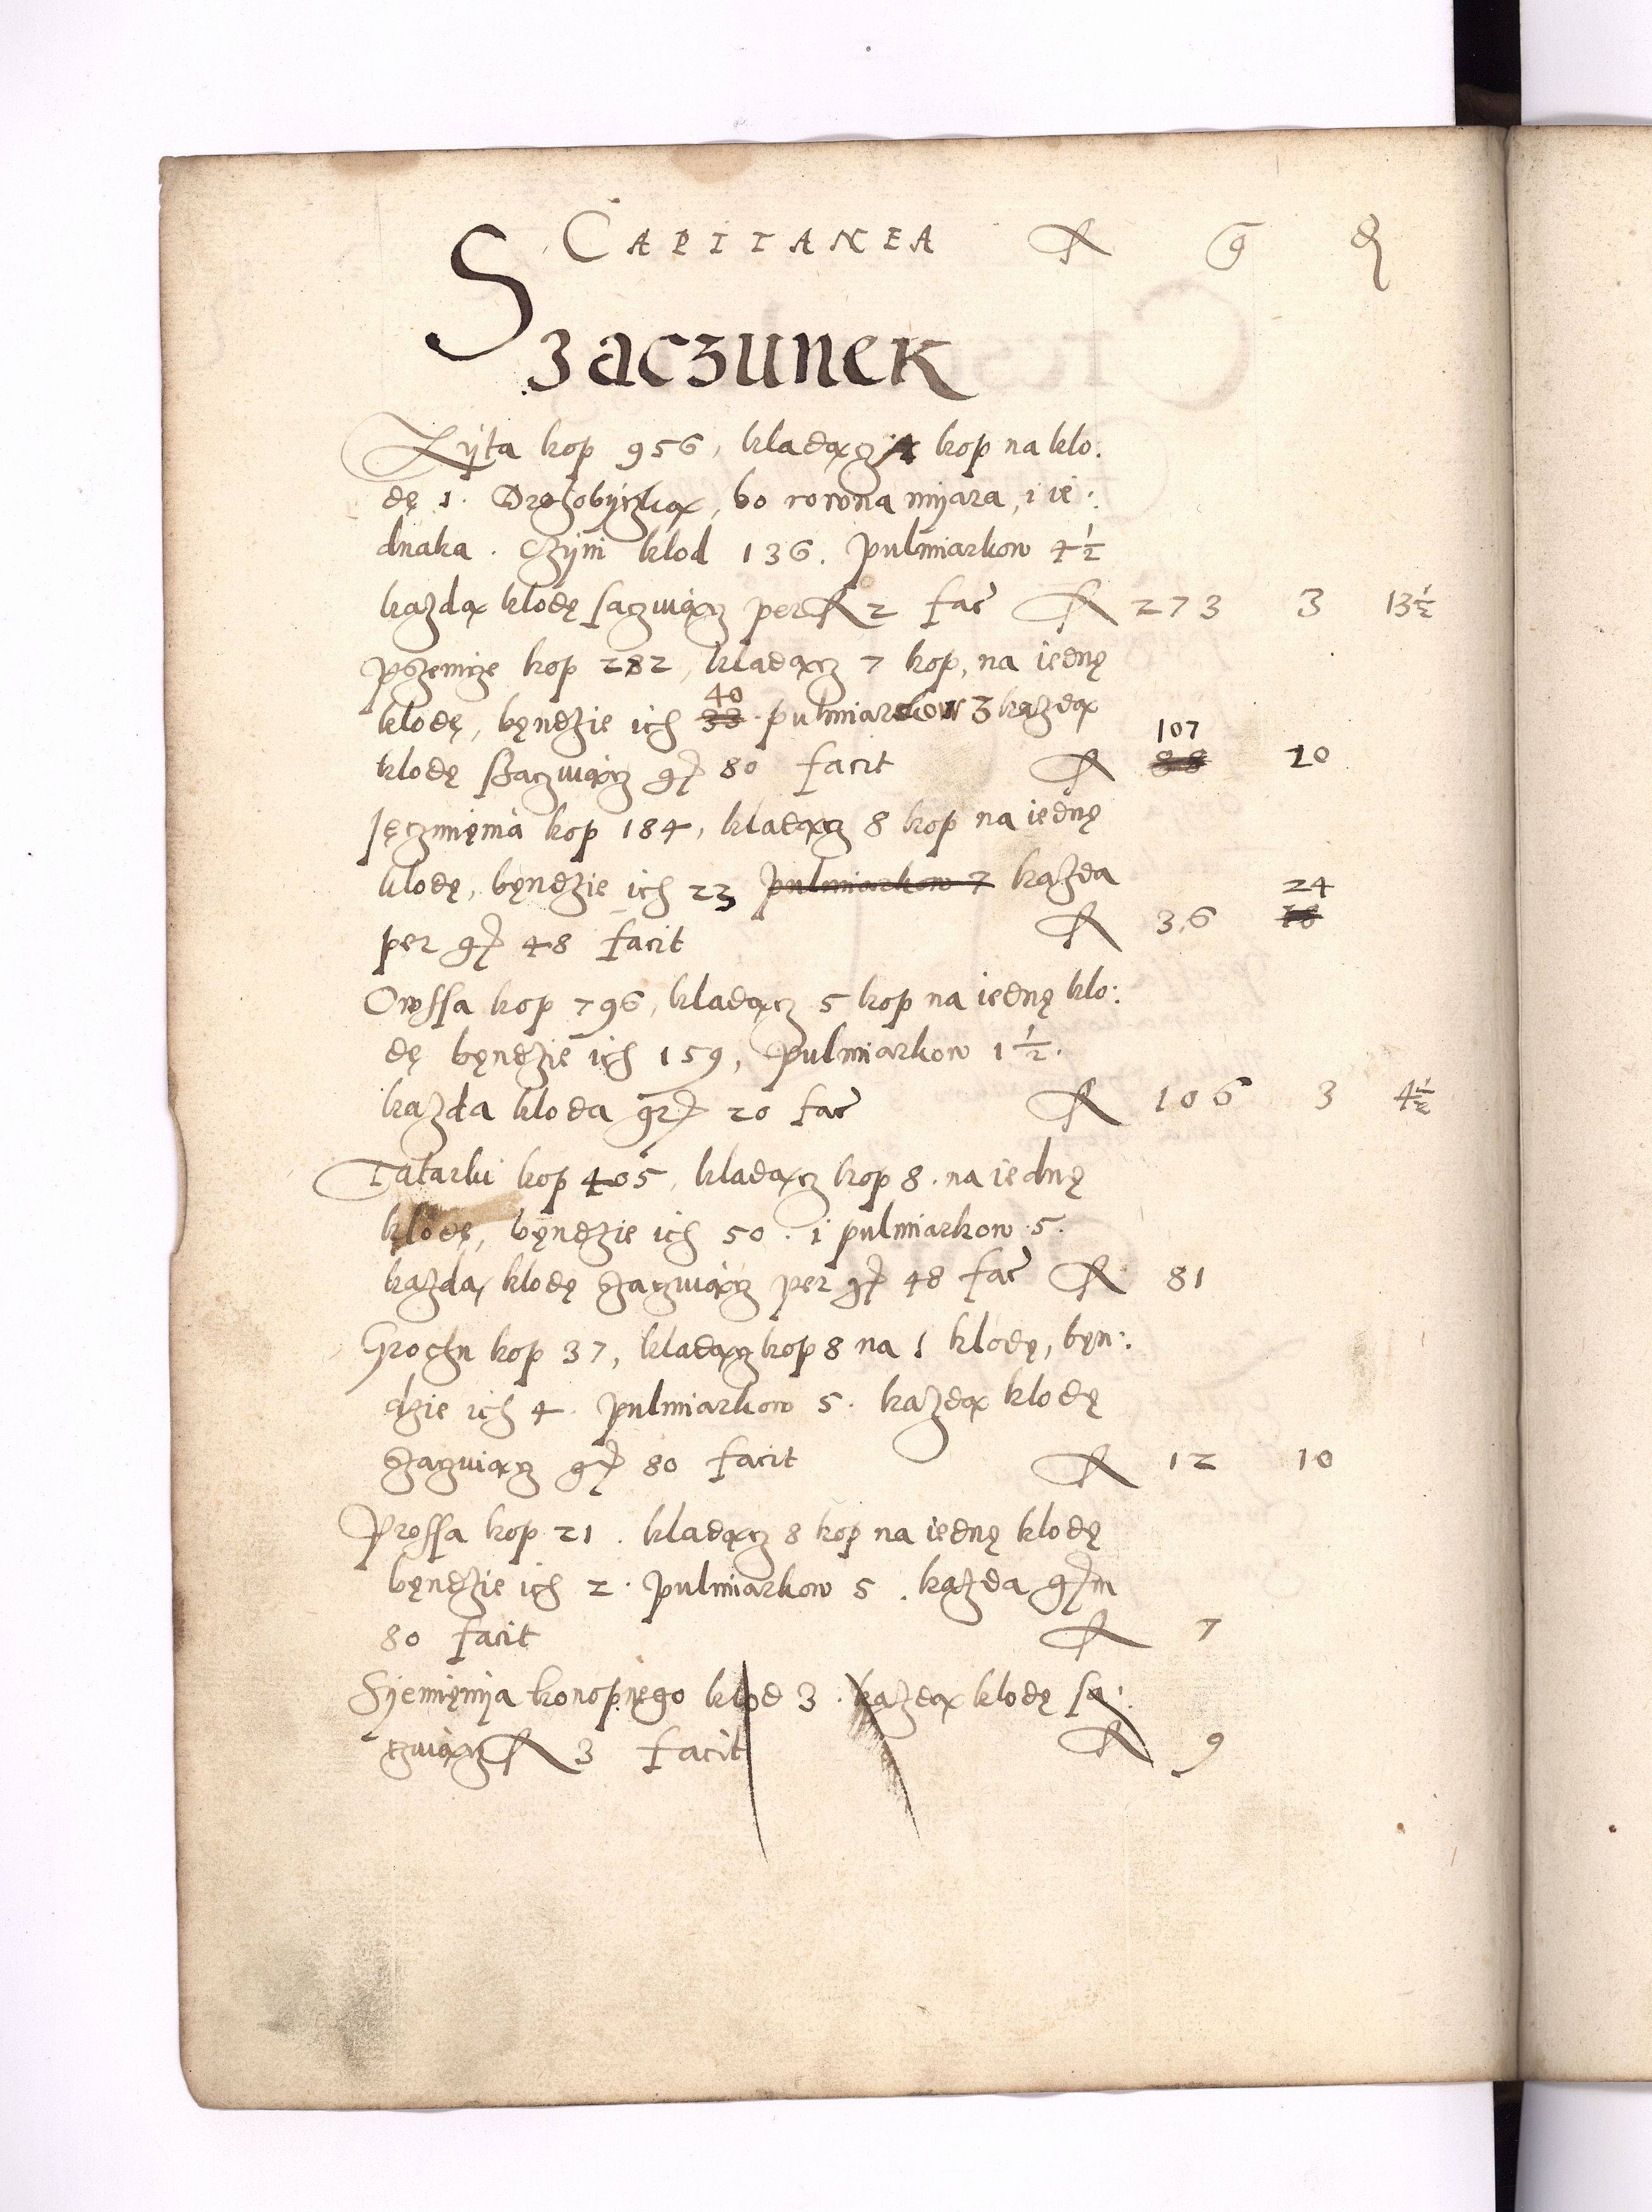 CAPITANEA fl g d
Szaczunek
Zyta kop 956, kladącz 7 kop na klo:
dę 1. Drohobyczką, bo rowna myara, i ie:
dnaka. Czyni klod 136. pulmiarkow 4 1/2
kazdą klodę saczuiącz per fl 2 fac fl 273 3 13 1/2
Pszenicze kop 282, kladącz 7 kop, na iednę
klodę, bęndzie ich 40 pulmiarkow 3 kazdą
klodę szaczuiącz gr 80 facit fl 107 10
Jęczmięnia kop 184, kladącz 8 kop na iednę
klodę, bęndzie ich 23 pulmiarkow 7 każda
per gr 48 facit fl 36 24
Owssa kop 796, kladącz 5 kop na iednę klo:
dę bęndzie ich 159, pulmiarkow 1 1/2.
kazda kloda gr 20 fac fl 106 3 4 1/2
Tatarki kop 405, kladącz kop 8. na iednę
klodę, bęndzie ich 50. i pulmiarkow 5.
kazdą klodę szaczuiącz per gr 48 fac fl 81
Grochu kop 37, kladącz kop 8 na 1 klodę, bęn:
dzie ich 4. pulmiarkow 5. kazdą klodę
szaczuiącz gr 80 facit fl 12 10
Prossa kop 21. kladącz 8 kop na iednę klodę
bęndzie ich 2. pulmiarkow 5. każda grm
80 facit fl 7
Syemięnya konopnego klod 3. każdą klodę sa:
czuiącz fl 3 facit fl 9